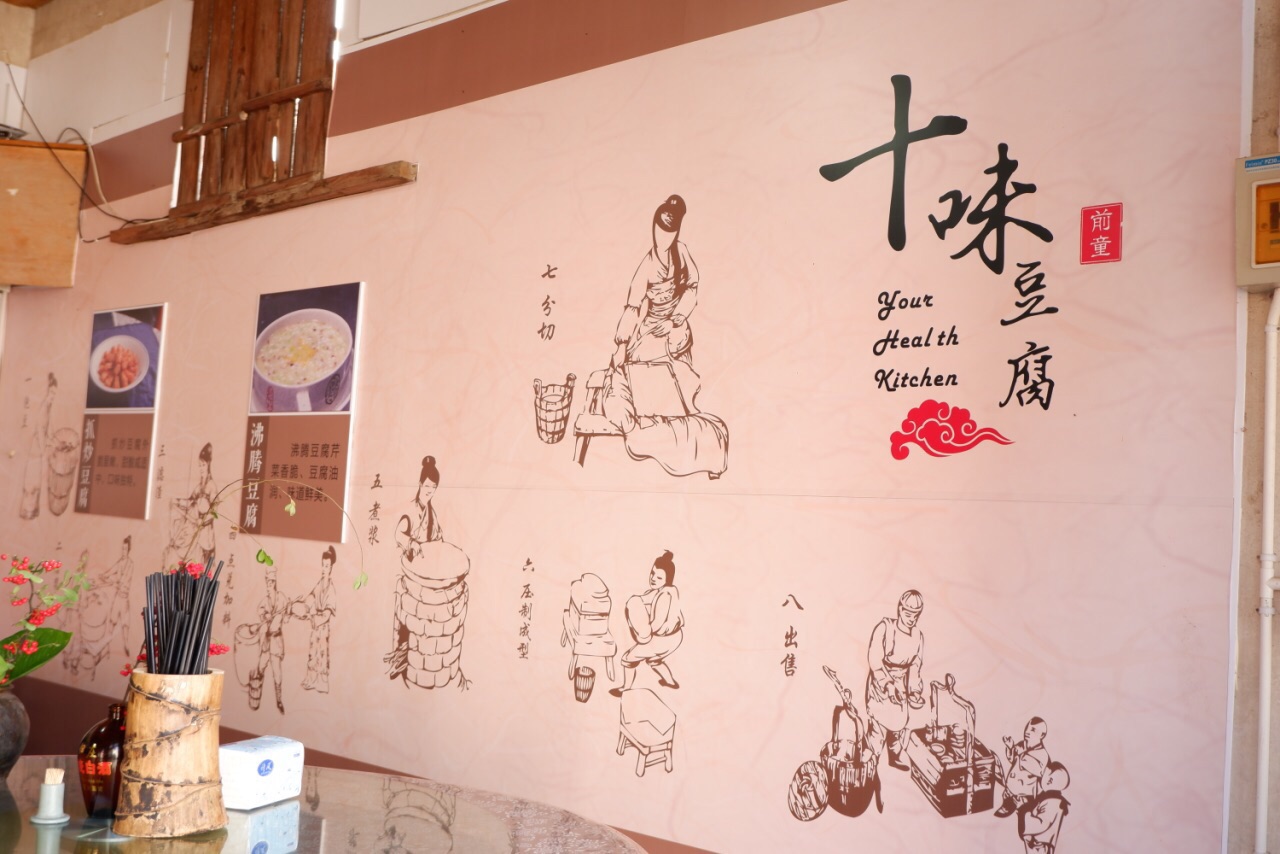 十味豆腐
前童
Your
Health
Kitchen
七分切
沸腾豆腐
沸腾豆腐芹
菜香脆、豆腐油
润、味道鲜美。
抓炒豆腐
三滤渣
五煮浆
六压制成型
八出售
白酒